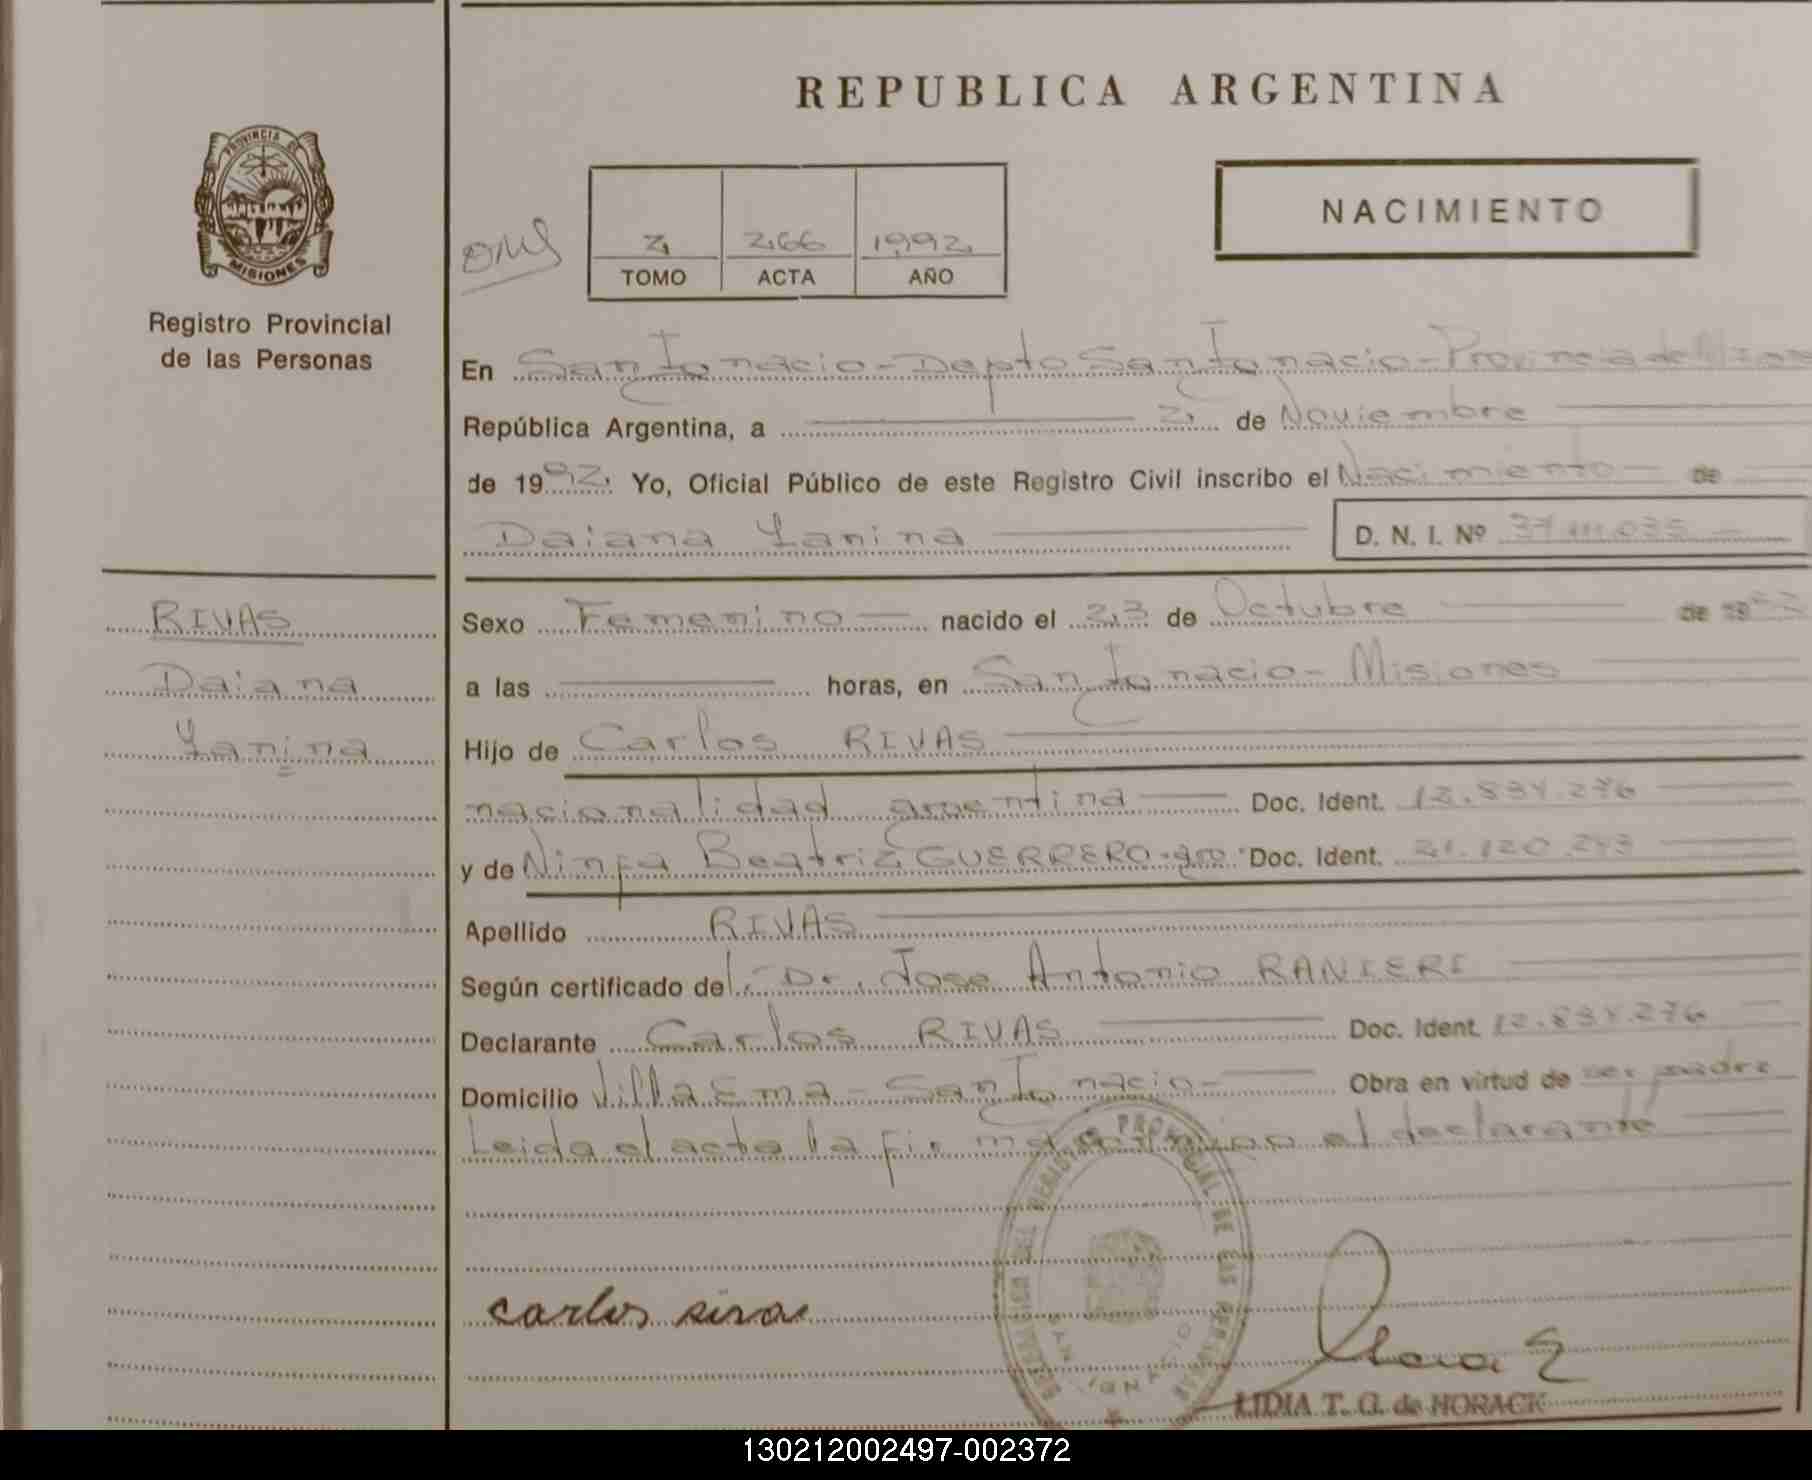 REPUBLICA ARGENTINA
PROVINCIA DE
MISIONES
Registro Provincial
de las Personas
NACIMIENTO
2 266 1992
TOMO ACTA AÑO
En San Ignacio - Depto San Ignacio - Provincia de
República Argentina, a 2 de Noviembre
de 1992 Yo, Oficial Público de este Registro Civil inscribo el Nacimiento de
Daiana Yanina D. N. I. Nº
RIVAS
Daiana
Yanina
Sexo Femenino nacido el 23 de Octubre de 19
a las horas, en San Ignacio - Misiones
Hijo de Carlos RIVAS
nacionalidad argentina Doc. Ident. 12.834.276
y de Ninfa Beatriz GUERRERO - arg. Doc. Ident.
Apellido RIVAS
Según certificado del Dr. Jose Antonio RANIERI
Declarante Carlos RIVAS Doc. Ident. 12.834.276
Domicilio Villa Ema San Ignacio - Obra en virtud de ser padre
Leida el acta la firma conmigo el declarante
DEL REGISTRO PROVINCIAL DE LAS PERSONAS
SAN IGNACIO
carlos rivas
LIDIA T. G. de HORACK
130212002497-002372